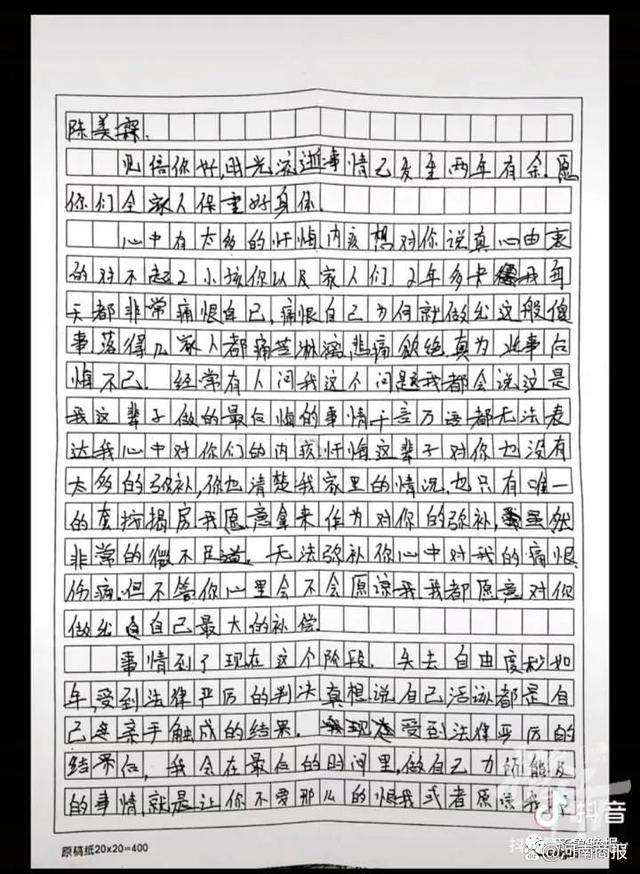 陈美霖.
见信你好,时光流逝事情已发生两年有余.愿
你们全家人保重好身体.
心中有太多的忏悔内疚想对你说真心由衷
的对不起2小孩你以及家人们.2年多来我每
天都非常痛恨自己,痛恨自己为何就做出这般傻
事.落得几家人都痛苦淋漓,悲痛欲绝.真为此事后
悔不已.经常有人问我这个问题我都会说这是
我这辈子做的最后悔的事情千言万语都无法表
达我心中对你们的内疚忏悔这辈子对你也没有
太多的弥补,你也清楚我家里的情况.也只有唯一
的套按揭房我愿意拿来作为对你的弥补,虽然
非常的微不足道.无法弥补你心中对我的痛恨
伤痛.但不管你心里会不会原谅我我都愿意对你
做出自己最大的补偿.
事情到了现在这个阶段.失去自由度秒如
年,受到法律严厉的判决真想说自己活该都是自
己亲手触成的结果.我现在受到法律严厉的
结果后,我会在最后的时间里,做自己力所能及
的事情,就是让你不爱那么的恨我或者原谅我
原稿纸20×20=400
抖音
河南商报